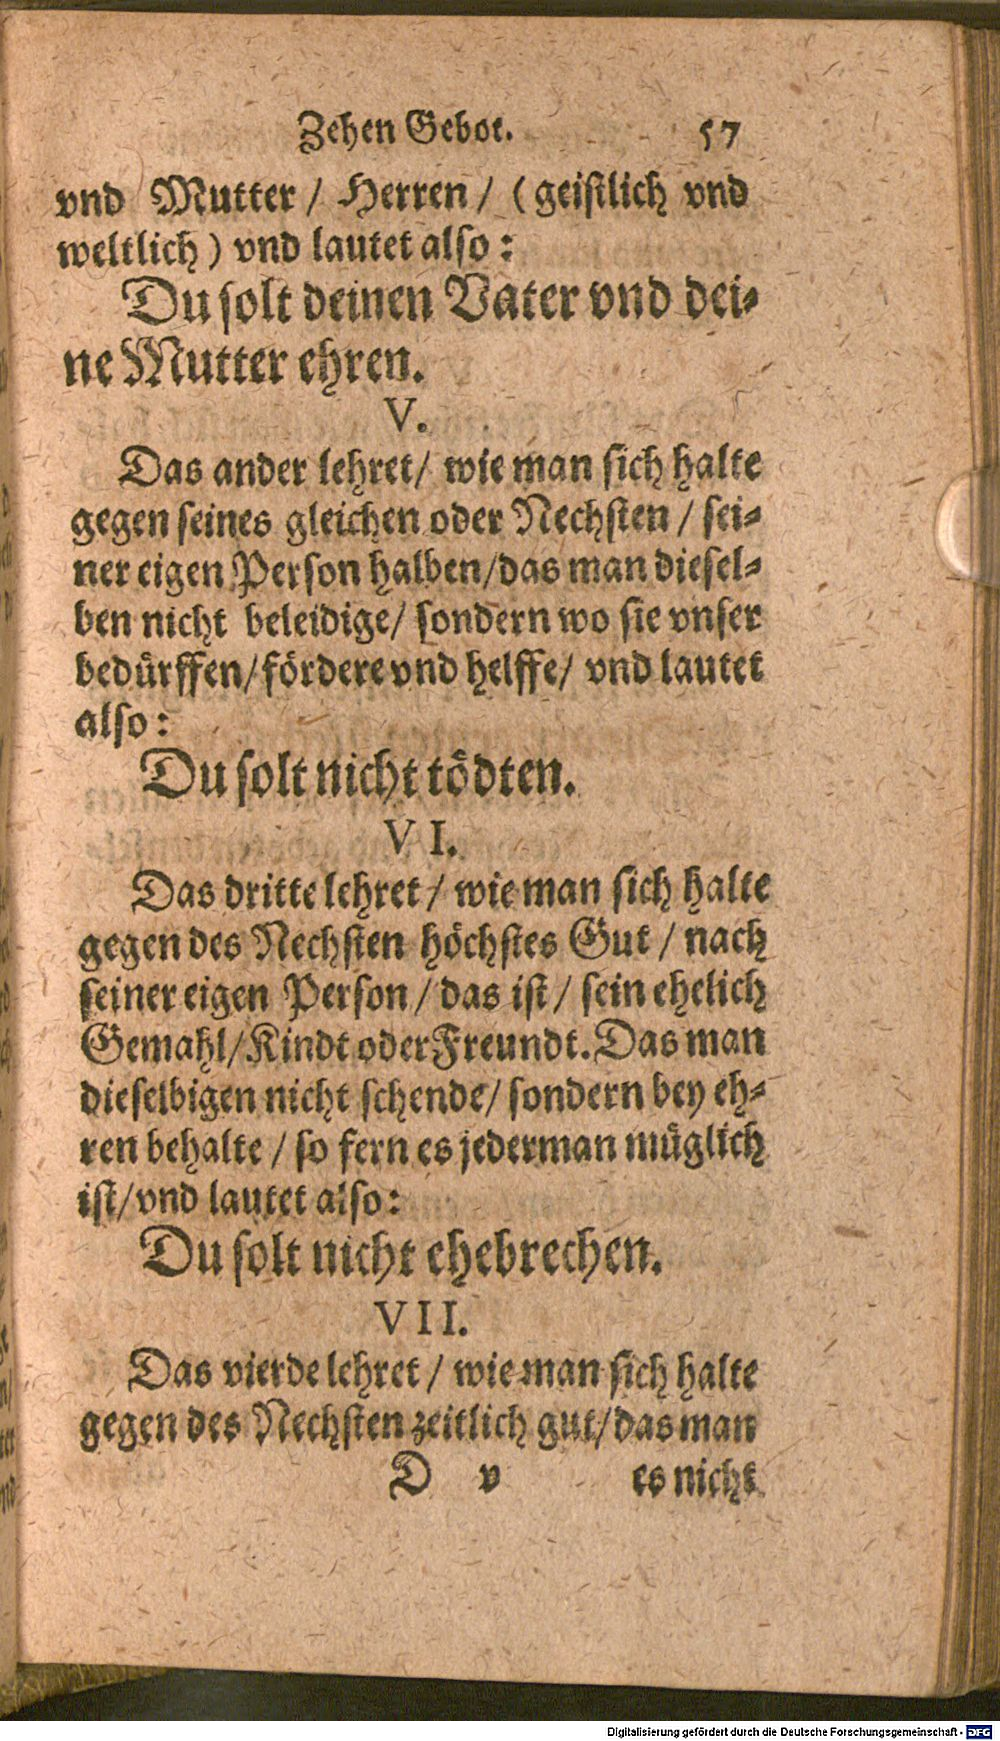 Zehen Gebot. 57
vnd Mutter / Herren / (geistlich vnd
weltlich) vnd lautet also:
Du solt deinen Vater vnd dei-
ne Mutter ehren.
V.
Das ander lehret / wie man sich halte
gegen seines gleichen oder Nechsten / sei-
ner eigen Person halben / das man diesel-
ben nicht beleidige / sondern wo sie vnser
bedürffen / fördere vnd helffe / vnd lautet
also:
Du solt nicht tödten.
VI.
Das dritte lehret / wie man sich halte
gegen des Nechsten höchstes Gut / nach
seiner eigen Person / das ist / sein ehelich
Gemahl / Kindt oder Freundt. Das man
dieselbigen nicht schende / sondern bey eh-
ren behalte / so fern es jederman müglich
ist / vnd lautet also:
Du solt nicht ehebrechen.
VII.
Das vierde lehret / wie man sich halte
gegen des Nechsten zeitlich gut / das man
D v es nicht
Digitalisierung gefördert durch die Deutsche Forschungsgemeinschaft - DFG